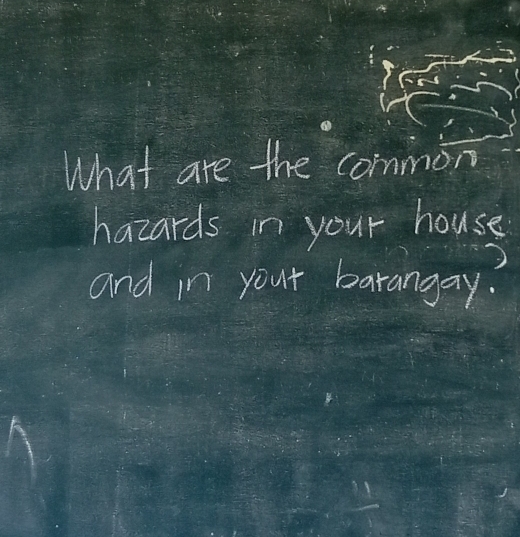 What are the common
hazards in your house
and in your barangay?